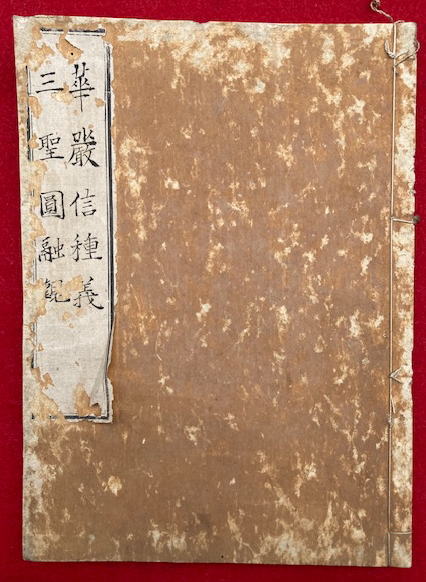 華嚴信種義
三聖圓融觀